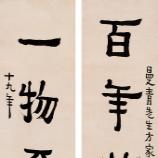 曼青先生方家
百年
一物
十九年